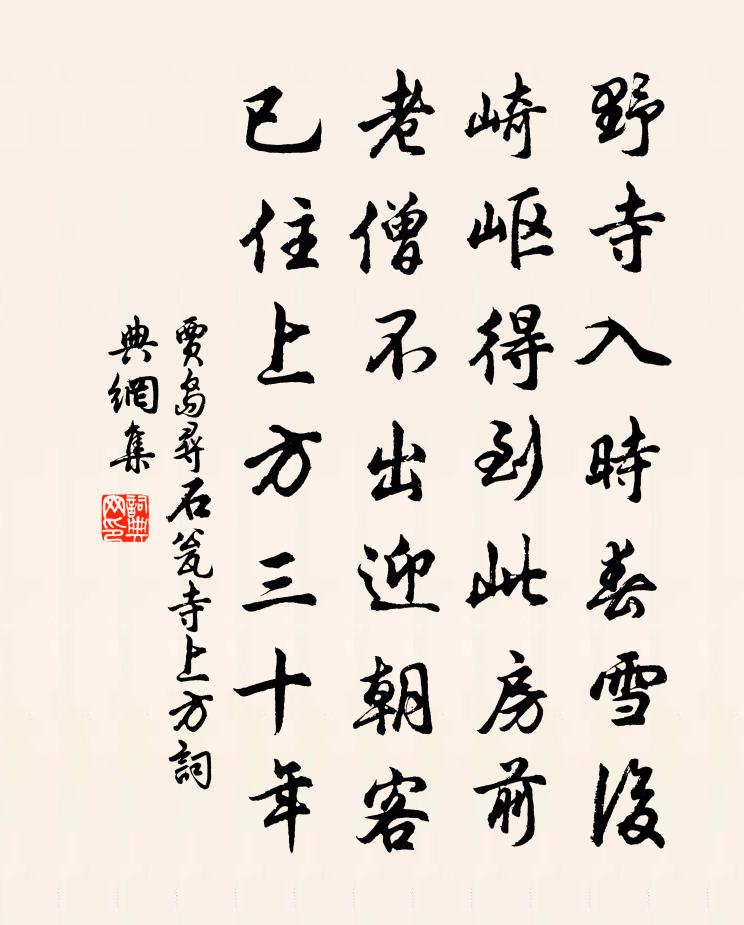 野寺入時春雪後
崎嶇得到此房前
老僧不出迎朝客
已住上方三十年
賈島尋石瓮寺上方詞
典網集
詞典
网印